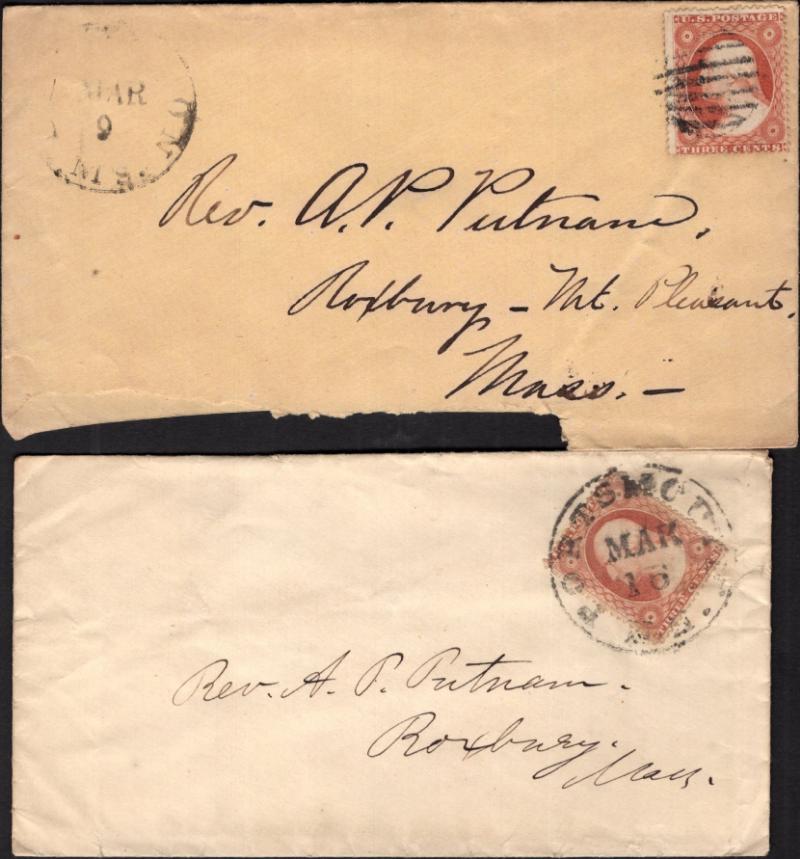 MAR
9
U.S. POSTAGE
THREE CENTS
Rev. A. P. Putnam,
Roxbury - Mt. Pleasant,
Mass. -
PORTSMOU
MAR
16
THREE CENTS
Rev. A. P. Putnam.
Roxbury.
Mass.